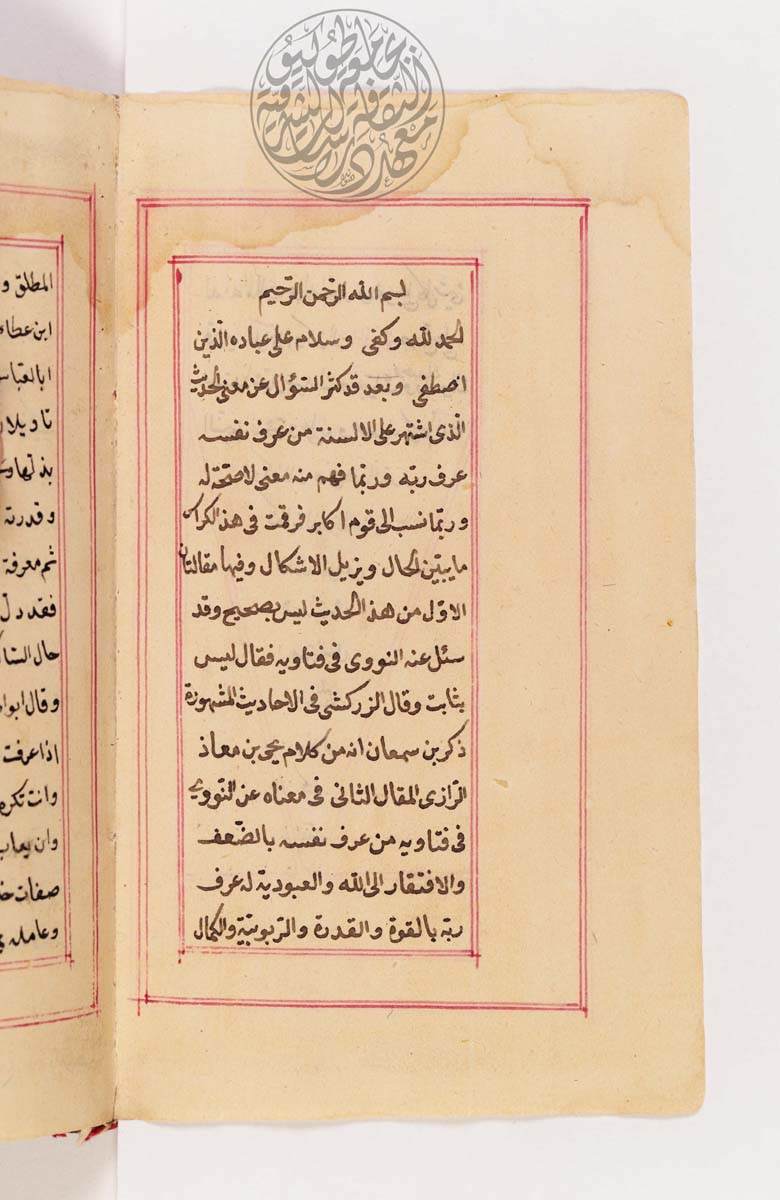 بسم الله الرّحمن الرّحيم
الحمد لله وكفى وسلام على عباده الّذين
اصطفى وبعد قد كثر السّؤال عن معنى الحديث
الّذى اشتهر على الالسنة من عرف نفسه
عرف ربّه وربّما فهم منه معنى لا صحّة له
وربّما نسب الى قوم اكابر فرقمت فى هذ الكراس
ما يبيّن الحال ويزيل الاشكال وفيها مقالتان
الاوّل من هذ الحديث ليس بصحيح وقد
سئل عنه النووى فى فتاويه فقال ليس
بثابت وقال الزركشى فى الاحاديث المشهورة
ذكر بن سمعان انه من كلام يحيى بن معاذ
الرّازى المقال الثانى فى معناه عن النّووي
فى فتاويه من عرف نفسه بالضّعف
والافتقار الى الله والعبودية له عرف
ربّه بالقوة والقدرة والرّبوبيّة والكمال
المطلق و
ابن عطاء
ابا العباس
تاويلا
وقدرته
ثم معرفة
فقد دلّ
حال السّا
وقال ابو
اذا عرفت
وانت تكره
وان يعاب
صفات
وعامله
جامعة طوكيو
معهد الثقافة والدراسات الشرقية